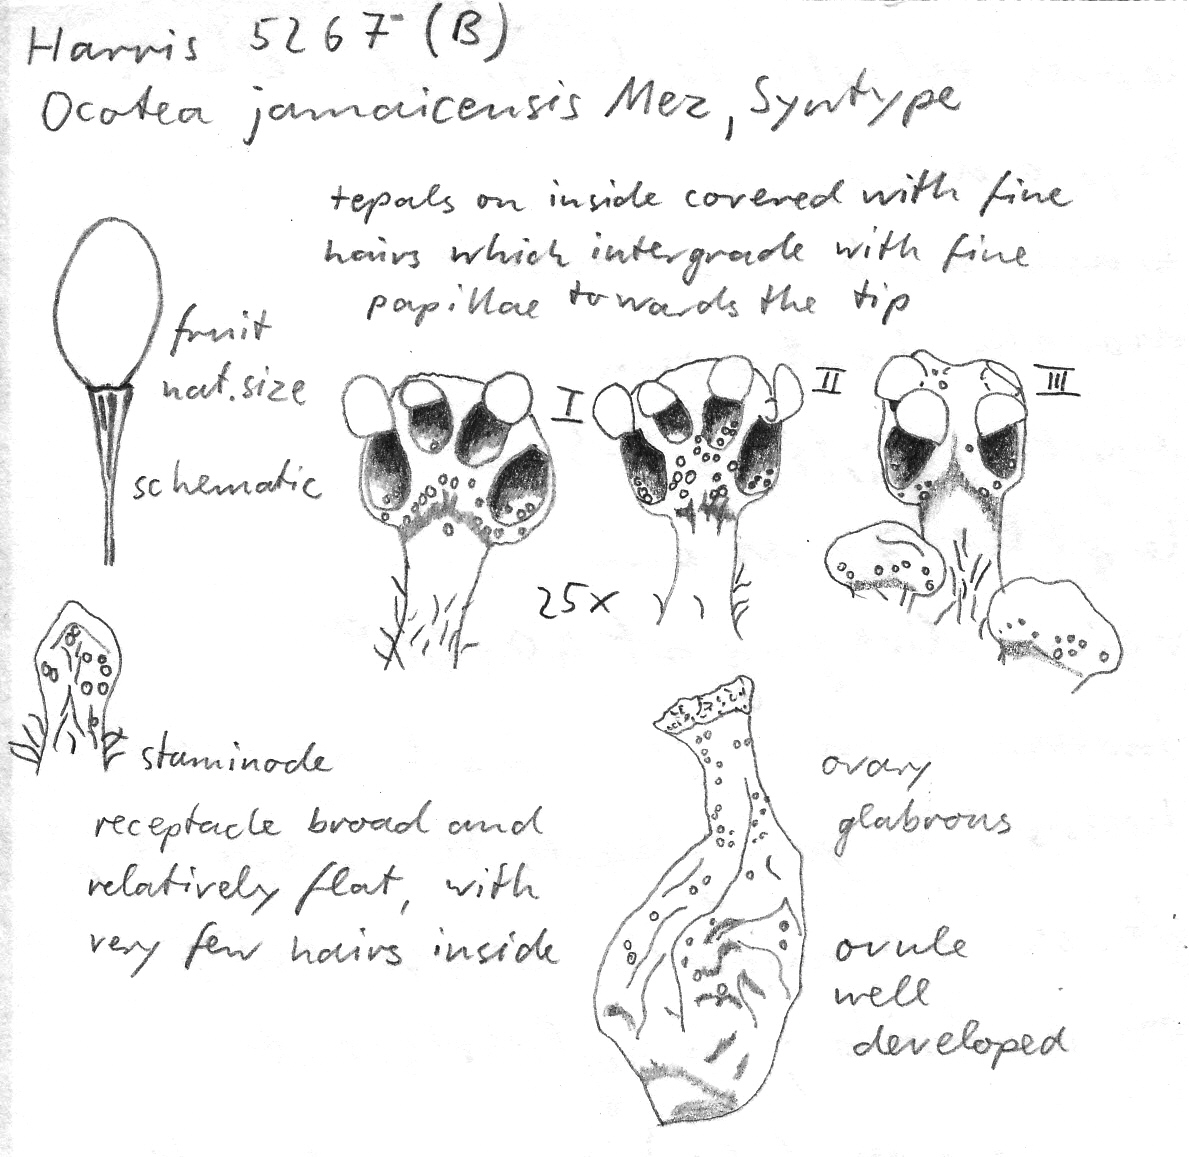 Harris 5267 (B)
Ocotea jamaicensis Mez, Syntype
tepals on inside covered with fine
hairs which intergrade with fine
papillae towards the tip
fruit
nat. size
schematic
I
II
III
25x
staminode
receptacle broad and
relatively flat, with
very few hairs inside
ovary
glabrous
ovule
well
developed